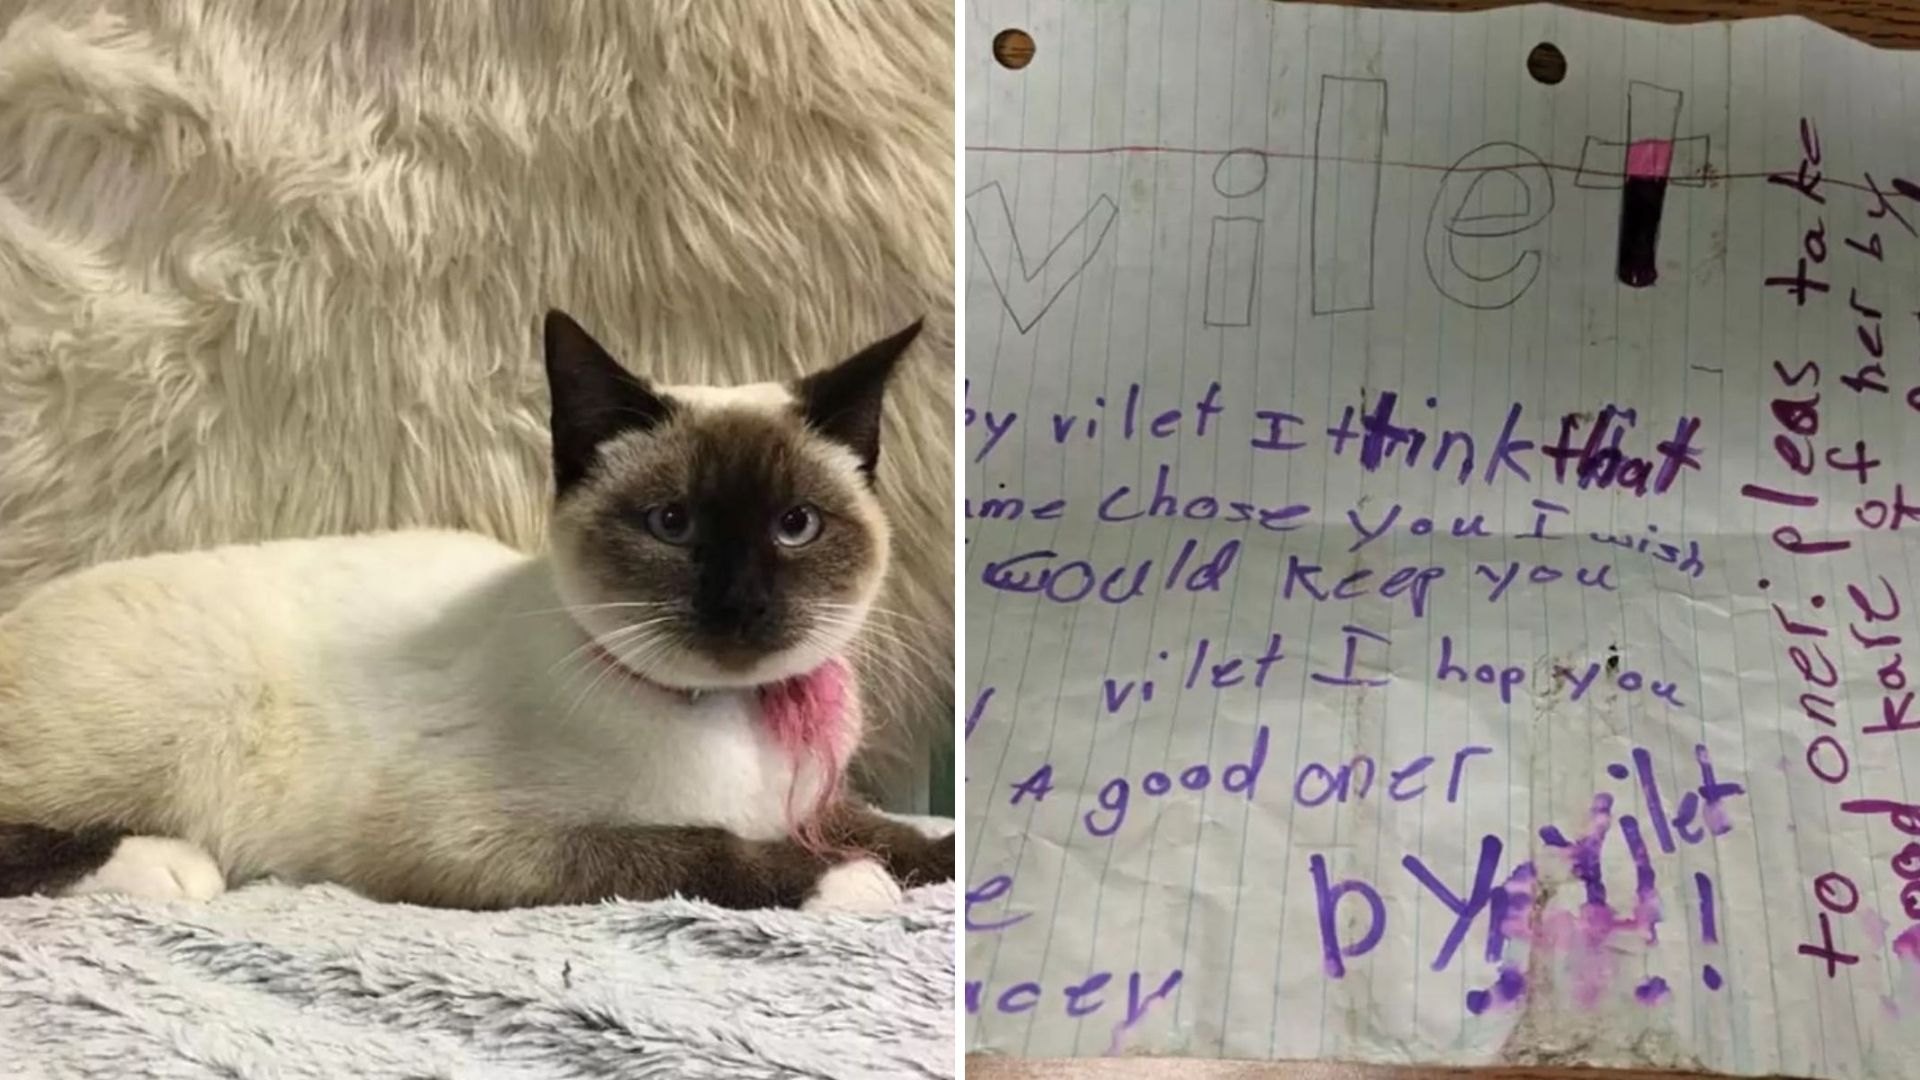 vilet
by vilet I think that
chose you I wish
would keep you
vilet I hop you
A good oner
by vilet!
to oner: pleas take
good kare of her by